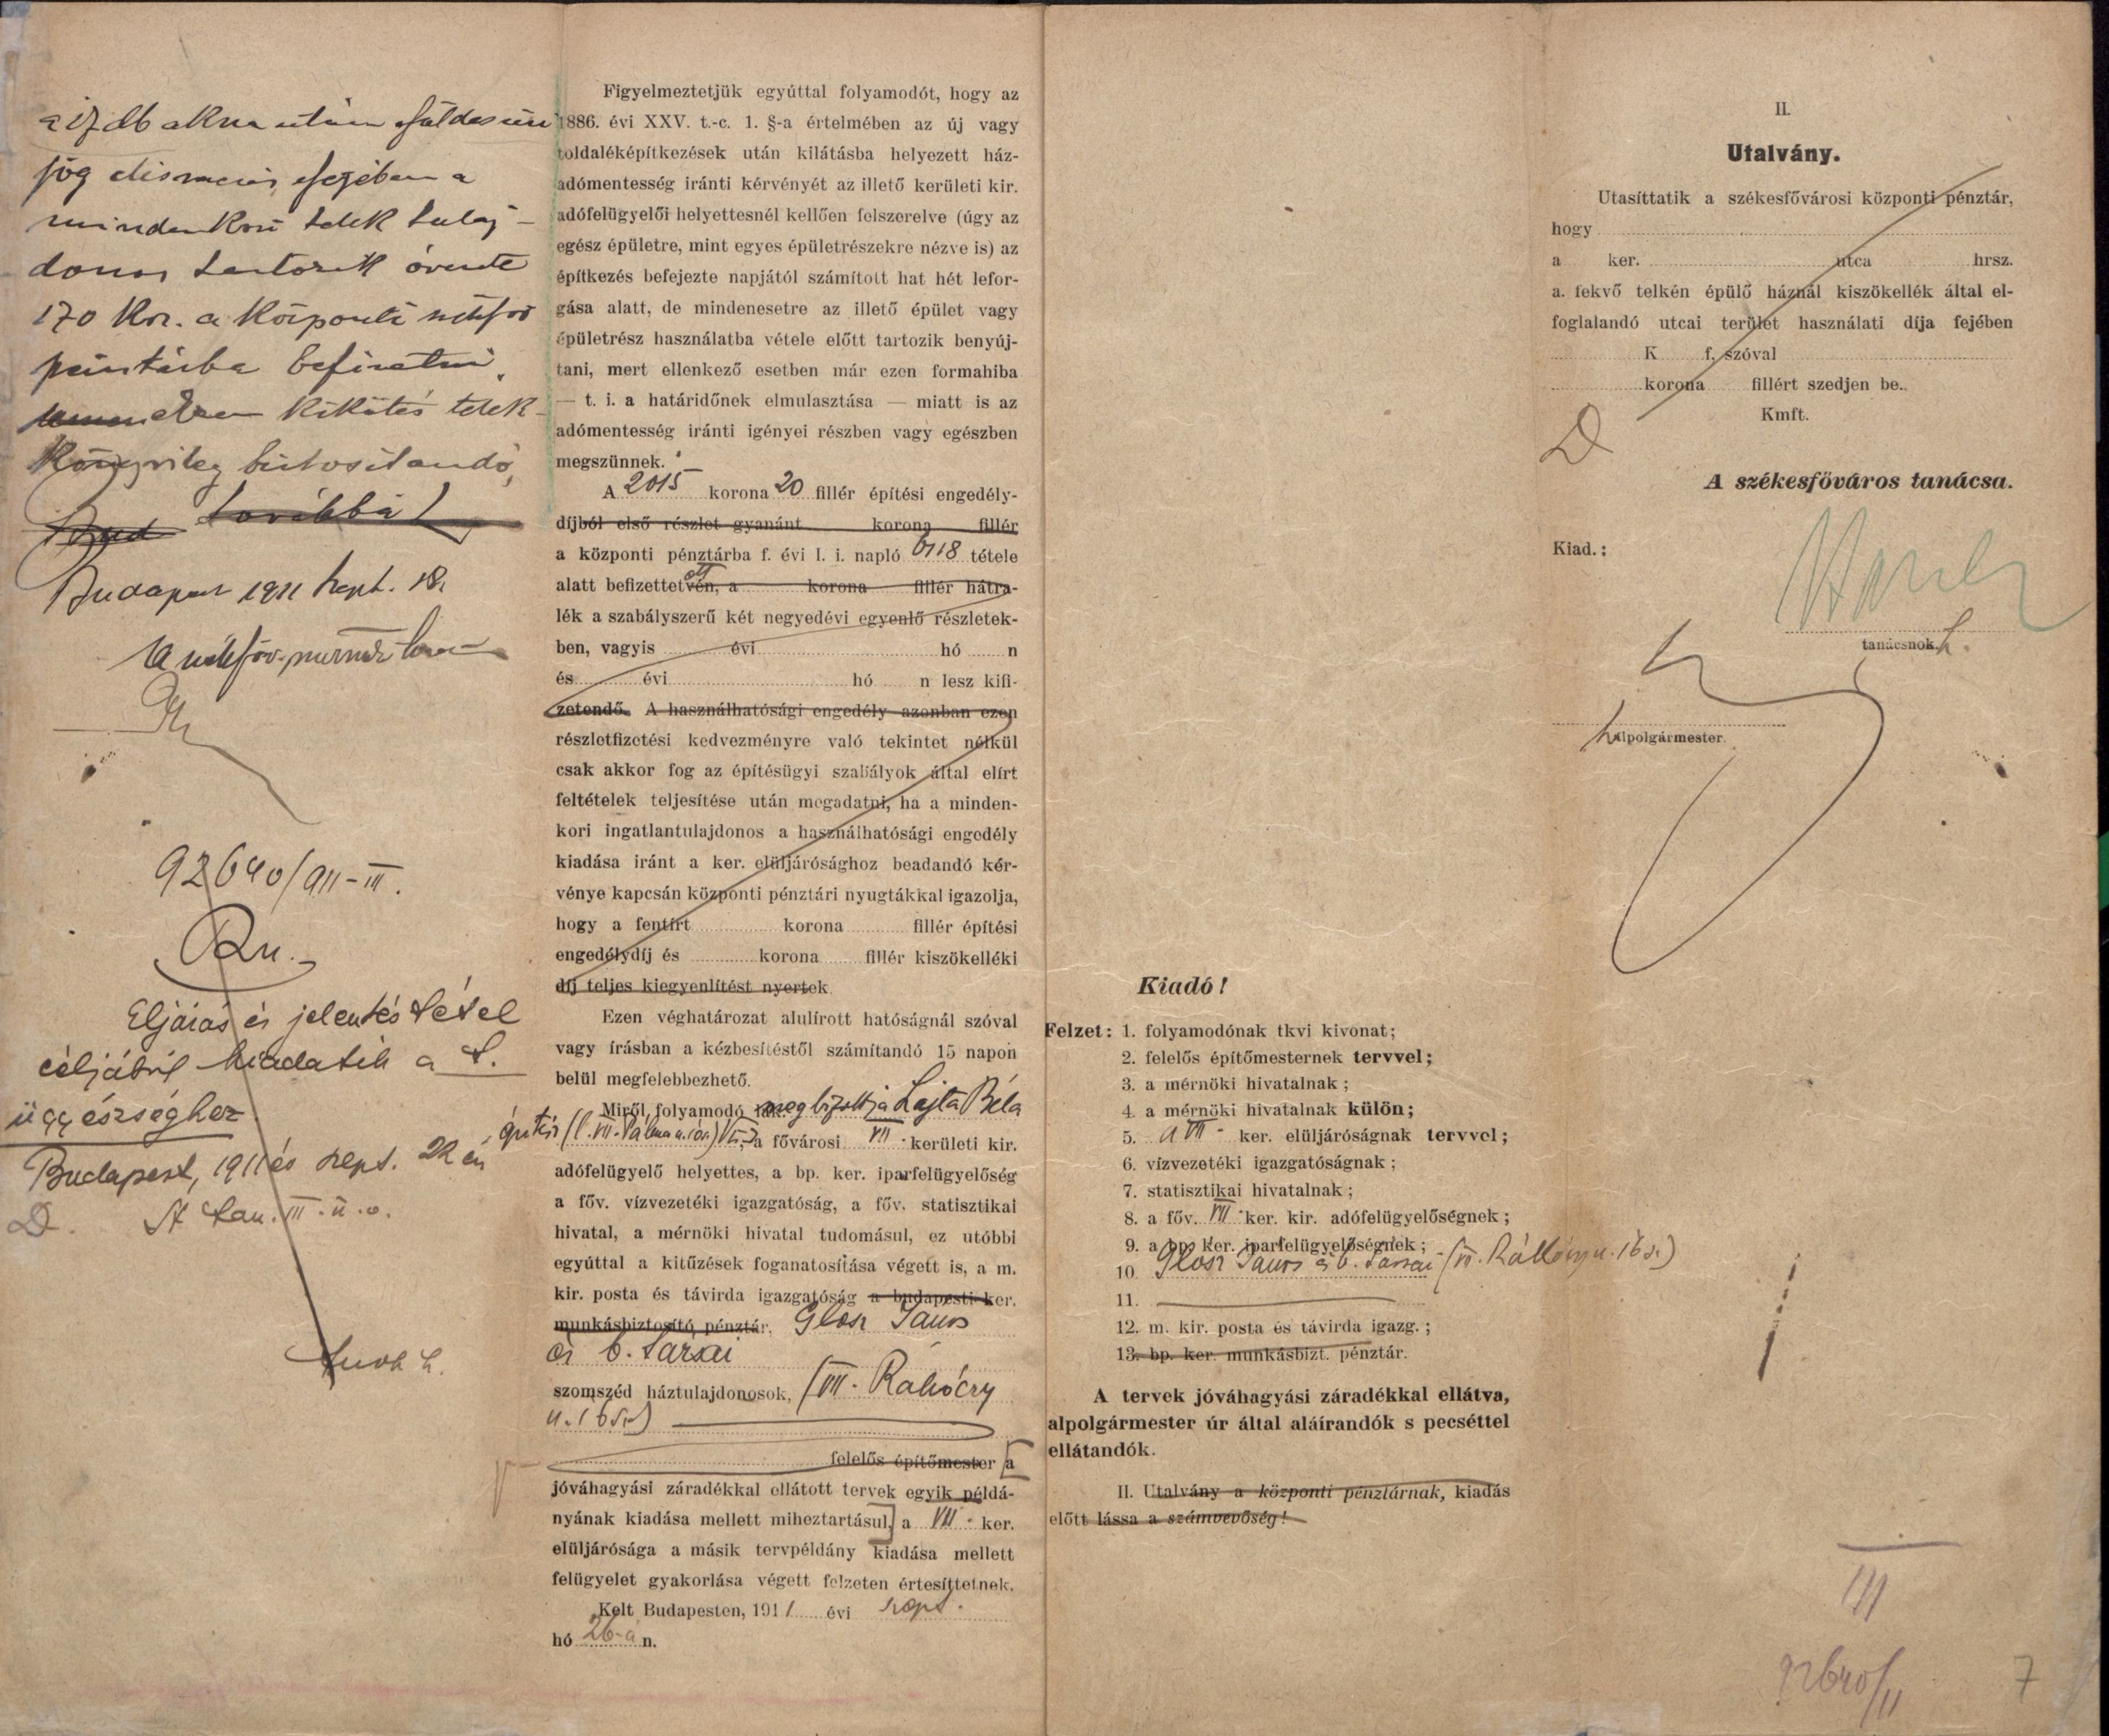 a 17 db akna után földesúri
jog elismerése fejében a
mindenkori telek tulaj-
donos tartozik évente
170 Kor. a központi székesfőv
pénztárba befizetni,
ezen kikötés telek-
könyvileg biztosítandó,
továbbá
Budapest 1911 Sept. 18.
A székesfőv. mérnöki
92640/911-III.
Eljárás és jelentés tétel
céljából kiadatik a t.
ügyészséghez
Budapest, 1911 és szept. 22 én
D. A tan. III. ü. o.
Figyelmeztetjük egyúttal folyamodót, hogy az
1886. évi XXV. t.-c. 1. §-a értelmében az új vagy
toldaléképítkezések után kilátásba helyezett ház-
adómentesség iránti kérvényét az illető kerületi kir.
adófelügyelői helyettesnél kellően felszerelve (úgy az
egész épületre, mint egyes épületrészekre nézve is) az
építkezés befejezte napjától számított hat hét lefor-
gása alatt, de mindenesetre az illető épület vagy
épületrész használatba vétele előtt tartozik benyúj-
tani, mert ellenkező esetben már ezen formahiba
— t. i. a határidőnek elmulasztása — miatt is az
adómentesség iránti igényei részben vagy egészben
megszünnek.
A 2015 korona 20 fillér építési engedély-
díjból első részlet gyanánt korona fillér
a központi pénztárba f. évi I. i. napló 6118 tétele
alatt befizettetvén, a korona fillér hátra-
lék a szabályszerű két negyedévi egyenlő részletek-
ben, vagyis évi hó n
és évi hó n lesz kifi-
zetendő. A használhatósági engedély azonban ezen
részletfizetési kedvezményre való tekintet nélkül
csak akkor fog az építésügyi szabályok által elírt
feltételek teljesítése után megadatni, ha a minden-
kori ingatlantulajdonos a használhatósági engedély
kiadása iránt a ker. elüljárósághoz beadandó kér-
vénye kapcsán központi pénztári nyugtákkal igazolja,
hogy a fentírt korona fillér építési
engedélydíj és korona fillér kiszökelléki
díj teljes kiegyenlítést nyertek.
Ezen véghatározat alulírott hatóságnál szóval
vagy írásban a kézbesítéstől számítandó 15 napon
belül megfelebbezhető.
Miről folyamodó megbizottja Lajta Béla
a fővárosi VII. kerületi kir.
adófelügyelő helyettes, a bp. ker. iparfelügyelőség
a főv. vízvezetéki igazgatóság, a főv. statisztikai
hivatal, a mérnöki hivatal tudomásul, ez utóbbi
egyúttal a kitűzések foganatosítása végett is, a m.
kir. posta és távirda igazgatóság a budapesti ker.
munkásbiztosító pénztár, Glosz János
és b. Társai
szomszéd háztulajdonosok, (VII. Rákóczy
u. 16 sz)
felelős építőmester [a
jóváhagyási záradékkal ellátott tervek egyik példá-
nyának kiadása mellett miheztartásul,] a VII. ker.
elüljárósága a másik tervpéldány kiadása mellett
felügyelet gyakorlása végett felzeten értesíttetnek.
Kelt Budapesten, 1911 évi szept.
hó 26-án.
Kiadó!
Felzet: 1. folyamodónak tkvi kivonat;
2. felelős építőmesternek tervvel;
3. a mérnöki hivatalnak;
4. a mérnöki hivatalnak külön;
5. a VII. ker. elüljáróságnak tervvel;
6. vízvezetéki igazgatóságnak;
7. statisztikai hivatalnak;
8. a főv. VII. ker. kir. adófelügyelőségnek;
9. a bp. ker. iparfelügyelőségnek;
10. Glosz János és b. Társai (VII. Rákóczy u. 16 sz.)
11.
12. m. kir. posta és távirda igazg.;
13. bp. ker. munkásbizt. pénztár.
A tervek jóváhagyási záradékkal ellátva,
alpolgármester úr által aláírandók s pecséttel
ellátandók.
II. Utalvány a központi pénztárnak, kiadás
előtt lássa a számvevőség!
II.
Utalvány.
Utasíttatik a székesfővárosi központi pénztár,
hogy
a ker. utca hrsz.
a. fekvő telkén épülő háznál kiszökellék által el-
foglalandó utcai terület használati díja fejében
K f, szóval
korona fillért szedjen be.
Kmft.
D
A székesfőváros tanácsa.
Kiad.:
tanácsnok h.
alpolgármester.
III
92640/11
7